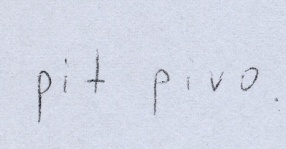 pit pivo.